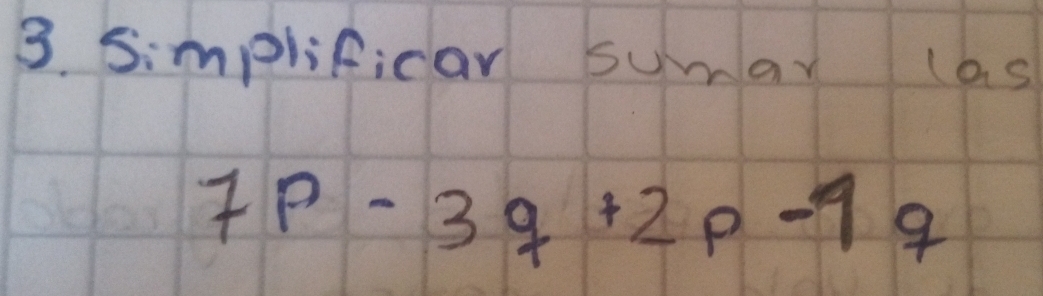 3. Simplificar sumar las
7p - 3q + 2p - 1q